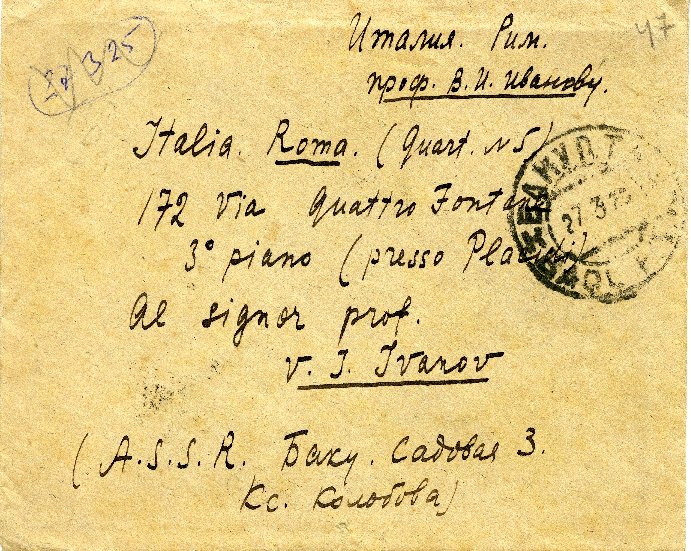 27 3 25
47
Италия. Рим.
проф. В. И. Иванову.
Italia. Roma. (Quart. N 5)
172 Via Quattro Fontane
3° piano (presso Placidi)
Al signor prof.
V. I. Ivanov
(A.S.S.R. Баку. Садовая 3.
Кс. Колобова)
БАКУ П.Т.
27 3 25